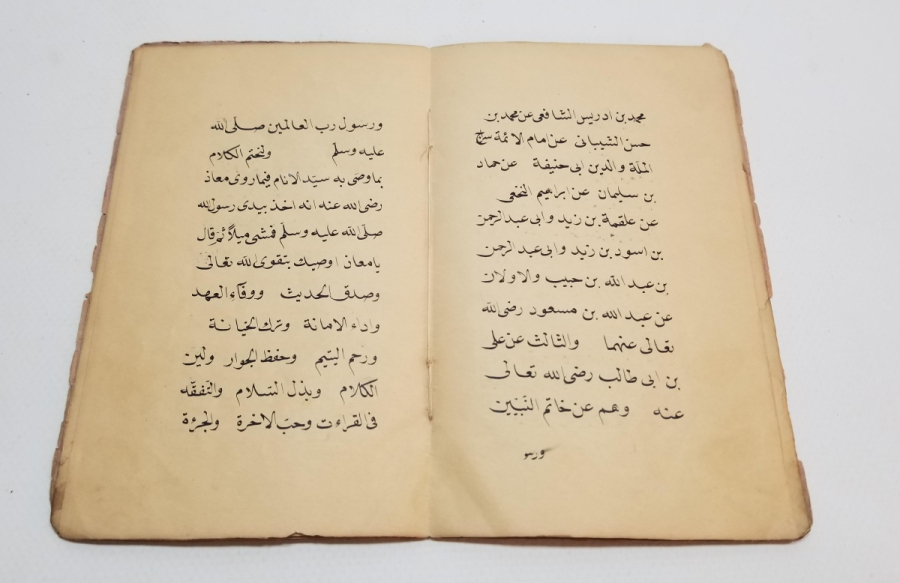 محمد بن ادريس الشافعى عن محمد بن
حسن الشيبانى عن امام الائمة سراج
الملة والدين ابى حنيفة عن حماد
بن سليمان عن ابراهيم النخعى
عن علقمة بن زيد وابى عبد الرحمن
بن اسود بن زيد وابى عبد الرحمن
بن عبد الله بن حبيب والاولان
عن عبد الله بن مسعود رضى الله
تعالى عنهما والثالث عن على
بن ابى طالب رضى الله تعالى
عنه وهم عن خاتم النبيين
ورسو
ورسول رب العالمين صلى الله
عليه وسلم ولنختم الكلام
بما وصى به سيد الانام فيما روى معاذ
رضى الله عنه انه اخذ بيدى رسول الله
صلى الله عليه وسلم فمشى ميلاً ثم قال
يا معاذ اوصيك بتقوى الله تعالى
وصدق الحديث ووفاء العهد
واداء الامانة وترك الخيانة
ورحم اليتيم وحفظ الجوار ولين
الكلام وبذل السلام والتفقه
فى القراءت وحب الاخرة والجزءة